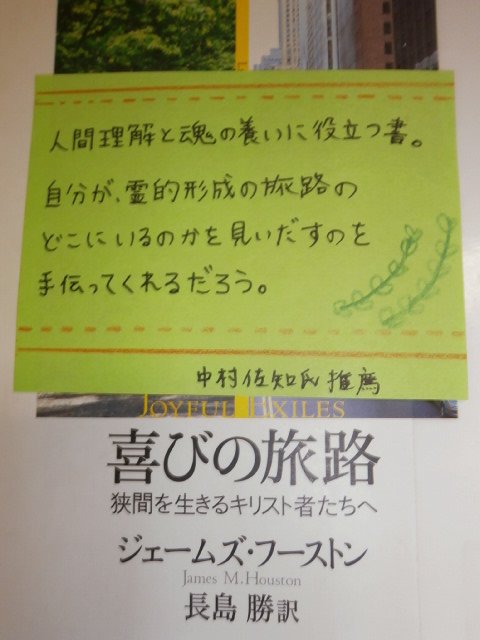 人間理解と魂の養いに役立つ書。
自分が、霊的形成の旅路の
どこにいるのかを見いだすのを
手伝ってくれるだろう。
中村佐知氏推薦
JOYFUL EXILES
喜びの旅路
狭間を生きるキリスト者たちへ
ジェームズ・フーストン
James M. Houston
長島 勝訳